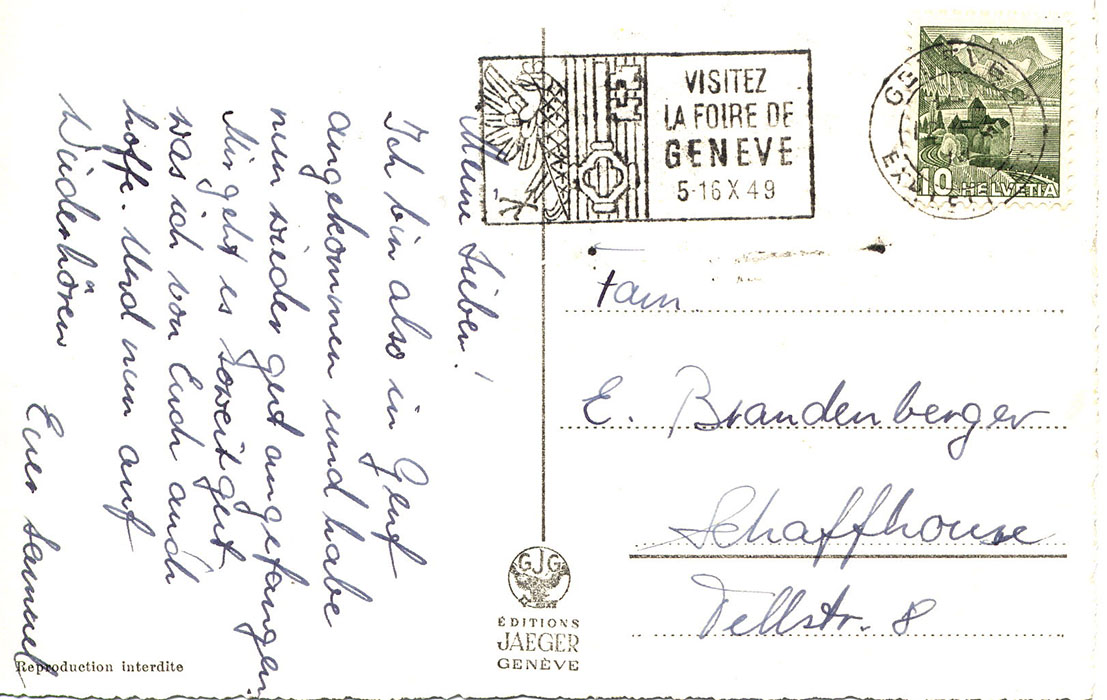 Meine Lieben!
Ich bin also in Genf
angekommen und habe
nun wieder gut angefangen.
Mir geht es soweit gut
was ich von Euch auch
hoffe. Und nun auf
Wiederhören
Euer Samuel
Reproduction interdite
VISITEZ
LA FOIRE DE
GENEVE
5-16 X 49
1
GENEVE
10 HELVETIA
Fam.
E. Brandenberger
Schaffhouse
Tellstr. 8
GJG
ÉDITIONS
JAEGER
GENÈVE